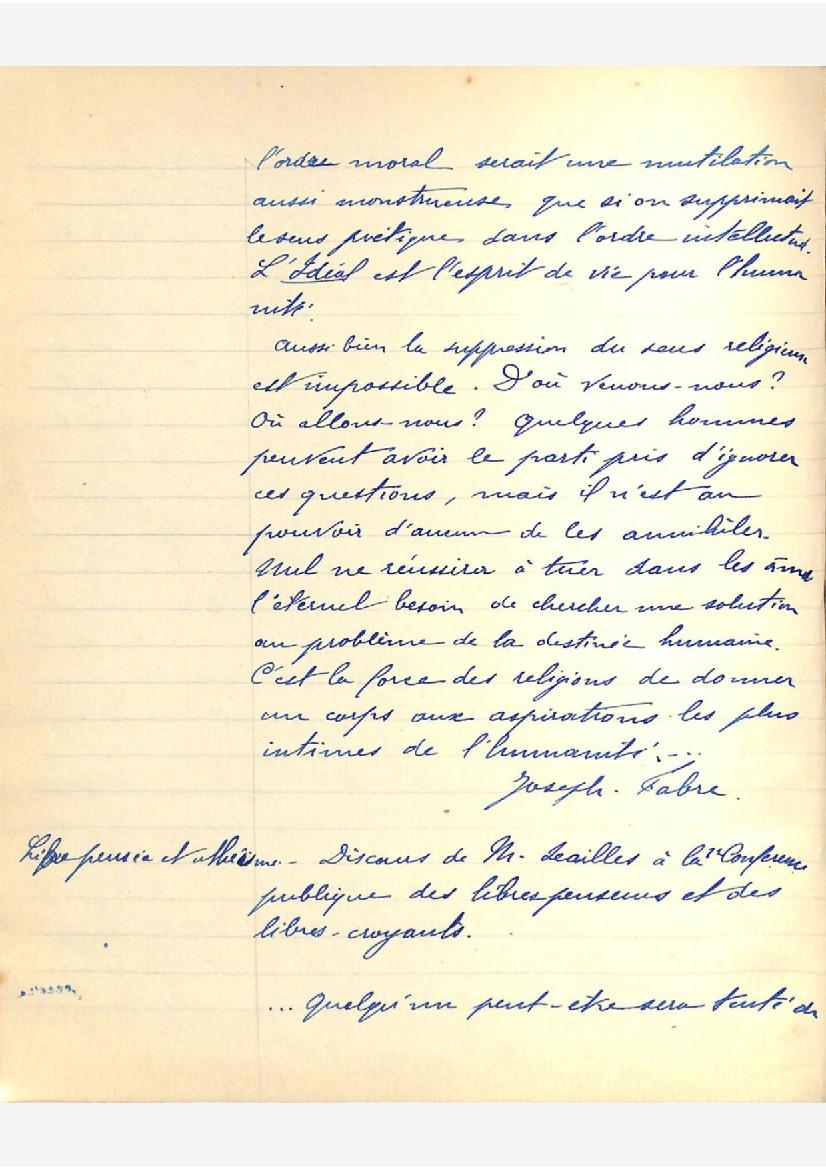 l'ordre moral serait une mutilation
aussi monstrueuse que si on supprimait
le sens poétique dans l'ordre intellectuel.
L'Idéal est l'esprit de vie pour l'huma
nité.
aussi bien la suppression du sens religieux
est impossible. D'où venons-nous?
Où allons-nous? Quelques hommes
peuvent avoir le parti pris d'ignorer
ces questions, mais il n'est au
pouvoir d'aucun de les annihiler.
Nul ne réussira à tuer dans les âmes
l'éternel besoin de chercher une solution
au problème de la destinée humaine.
C'est la force des religions de donner
un corps aux aspirations les plus
intimes de l'humanité....
Joseph. Fabre.
Libre pensée et athéisme - Discours de M. Seailles à la 1re Conférence
publique des libres penseurs et des
libres-croyants.
... Quelqu'un peut-etre sera tenté de